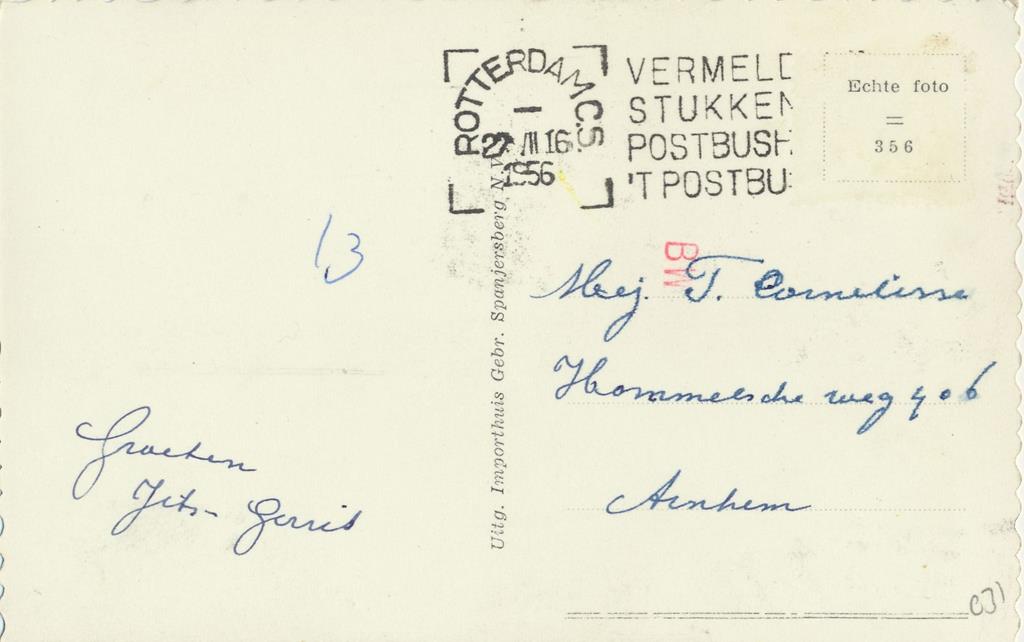 ROTTERDAM C.S
27 III 16
1956
VERMELD
STUKKEN
POSTBUSH
'T POSTBU
Echte foto
=
356
BW
13
Uitg. Importhuis Gebr. Spanjersberg N.V.
Mej. T. Cornelisse
Hommelsche weg 406
Arnhem
Groeten
Gerrit
031